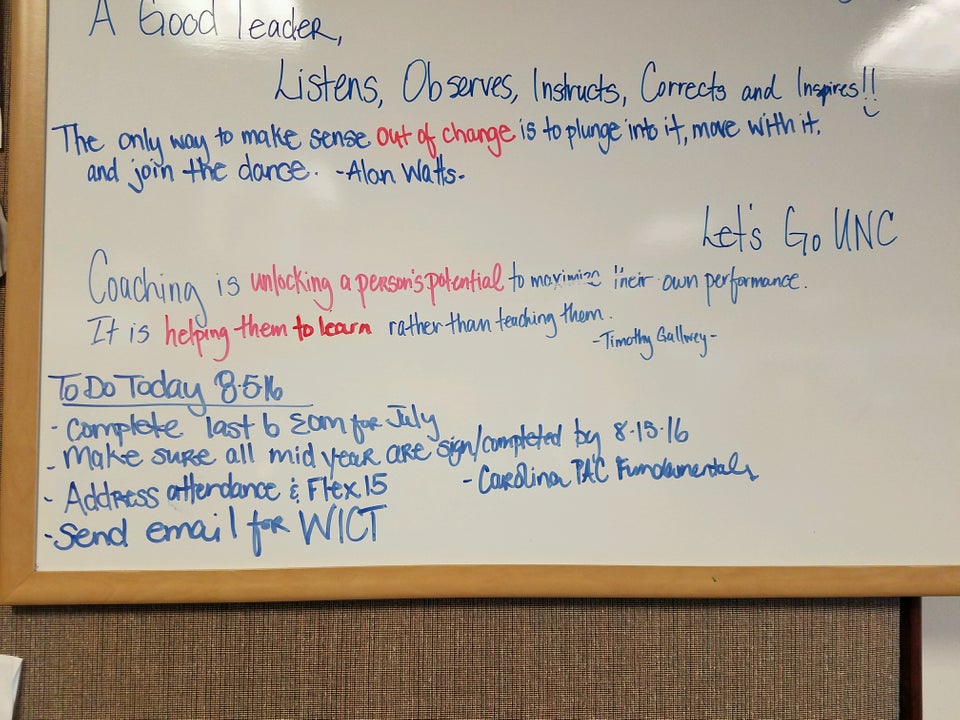 A Good leader,
Listens, Observes, Instructs, Corrects and Inspires!!
The only way to make sense out of change is to plunge into it, move with it,
and join the dance. -Alan Watts-
Let's Go UNC
Coaching is unlocking a person's potential to maximize their own performance.
It is helping them to learn rather than teaching them.
-Timothy Gallwey-
To Do Today 8·5·16
- Complete last 6 EOM for July
- Make sure all mid year are sign/completed by 8·15·16
- Address attendance & Flex 15
- Carolina PAC Fundamentals
- Send email for WICT